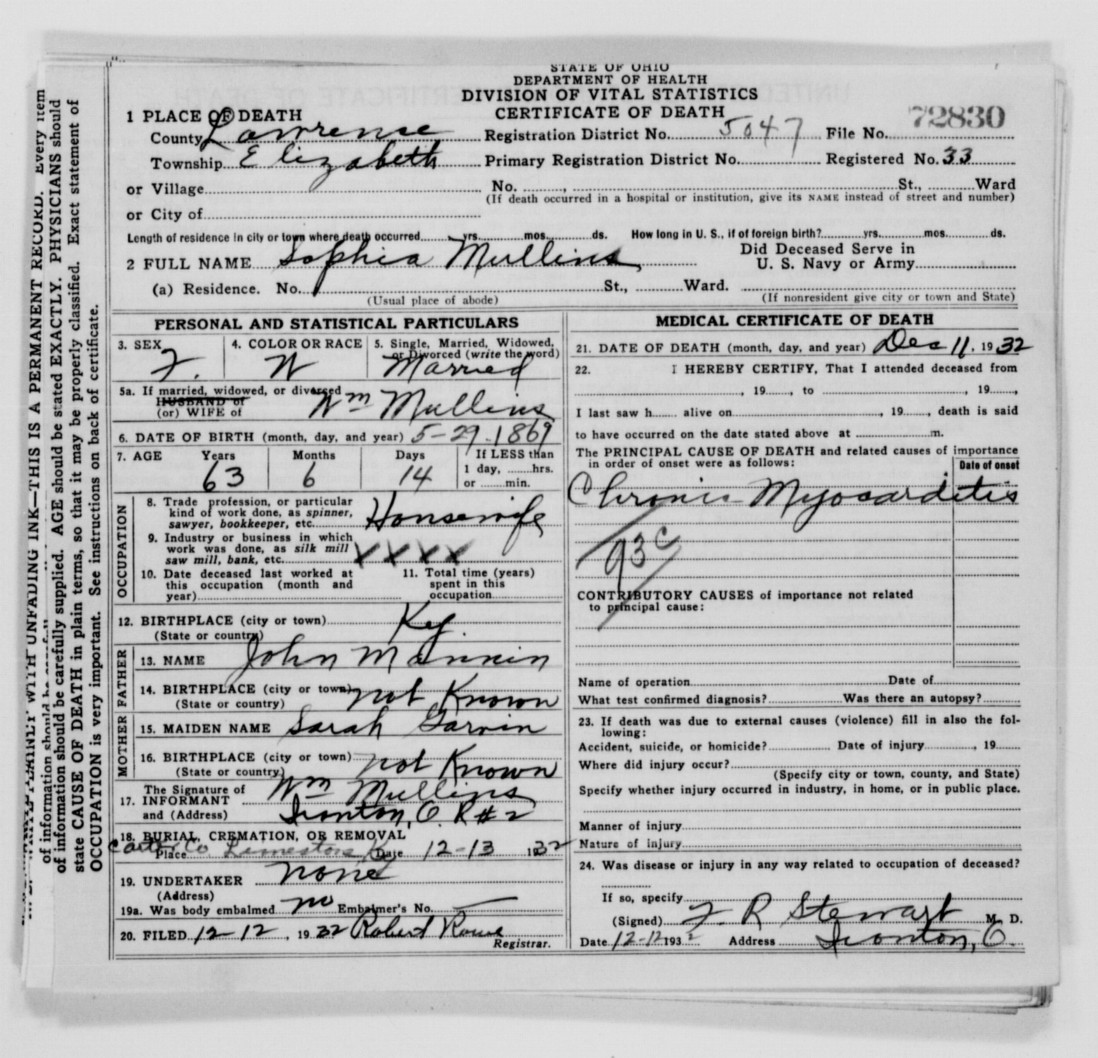 STATE OF OHIO
DEPARTMENT OF HEALTH
DIVISION OF VITAL STATISTICS
CERTIFICATE OF DEATH
1 PLACE OF DEATH
County Lawrence Registration District No. 5047 File No. 72830
Township Elizabeth Primary Registration District No. Registered No. 33
or Village No. , St., Ward
(If death occurred in a hospital or institution, give its NAME instead of street and number)
or City of
Length of residence in city or town where death occurred yrs. mos. ds. How long in U. S., if of foreign birth? yrs. mos. ds.
2 FULL NAME Sophia Mullins Did Deceased Serve in U. S. Navy or Army
(a) Residence. No. St., Ward.
(Usual place of abode) (If nonresident give city or town and State)
PERSONAL AND STATISTICAL PARTICULARS
3. SEX 4. COLOR OR RACE 5. Single, Married, Widowed, or Divorced (write the word)
F. W Married
5a. If married, widowed, or divorced
HUSBAND of
(or) WIFE of Wm Mullins
6. DATE OF BIRTH (month, day, and year) 5-29-1869
7. AGE Years Months Days If LESS than
1 day, hrs.
or min.
63 6 14
OCCUPATION
8. Trade profession, or particular
kind of work done, as spinner,
sawyer, bookkeeper, etc. Housewife
9. Industry or business in which
work was done, as silk mill
saw mill, bank, etc. XXXX
10. Date deceased last worked at
this occupation (month and
year)
11. Total time (years)
spent in this
occupation
12. BIRTHPLACE (city or town) Ky.
(State or country)
FATHER
13. NAME John Mannin
14. BIRTHPLACE (city or town) not Known
(State or country)
MOTHER
15. MAIDEN NAME Sarah Garvin
16. BIRTHPLACE (city or town) not Known
(State or country)
17. The Signature of
INFORMANT Wm Mullins
and (Address) Ironton, O. R#2
18. BURIAL, CREMATION, OR REMOVAL
Place Carter Co Limestone Ky Date 12-13 1932
19. UNDERTAKER none
(Address)
19a. Was body embalmed no Embalmer's No.
20. FILED 12-12, 1932 Robert Rowe
Registrar.
MEDICAL CERTIFICATE OF DEATH
21. DATE OF DEATH (month, day, and year) Dec 11, 1932
22. I HEREBY CERTIFY, That I attended deceased from
, 19 , to , 19 ,
I last saw h alive on , 19 , death is said
to have occurred on the date stated above at m.
The PRINCIPAL CAUSE OF DEATH and related causes of importance
in order of onset were as follows:
Date of onset
Chronic Myocarditis
93c
CONTRIBUTORY CAUSES of importance not related
to principal cause:
Name of operation Date of
What test confirmed diagnosis? Was there an autopsy?
23. If death was due to external causes (violence) fill in also the fol-
lowing:
Accident, suicide, or homicide? Date of injury , 19
Where did injury occur?
(Specify city or town, county, and State)
Specify whether injury occurred in industry, in home, or in public place.
Manner of injury
Nature of injury
24. Was disease or injury in any way related to occupation of deceased?
If so, specify
(Signed) F R Stewart M. D.
Date 12-12 1932 Address Ironton, O.
of information should be carefully supplied. AGE should be stated EXACTLY. PHYSICIANS should
state CAUSE OF DEATH in plain terms, so that it may be properly classified. Exact statement of
OCCUPATION is very important. See instructions on back of certificate.
WITH UNFADING INK—THIS IS A PERMANENT RECORD. Every item